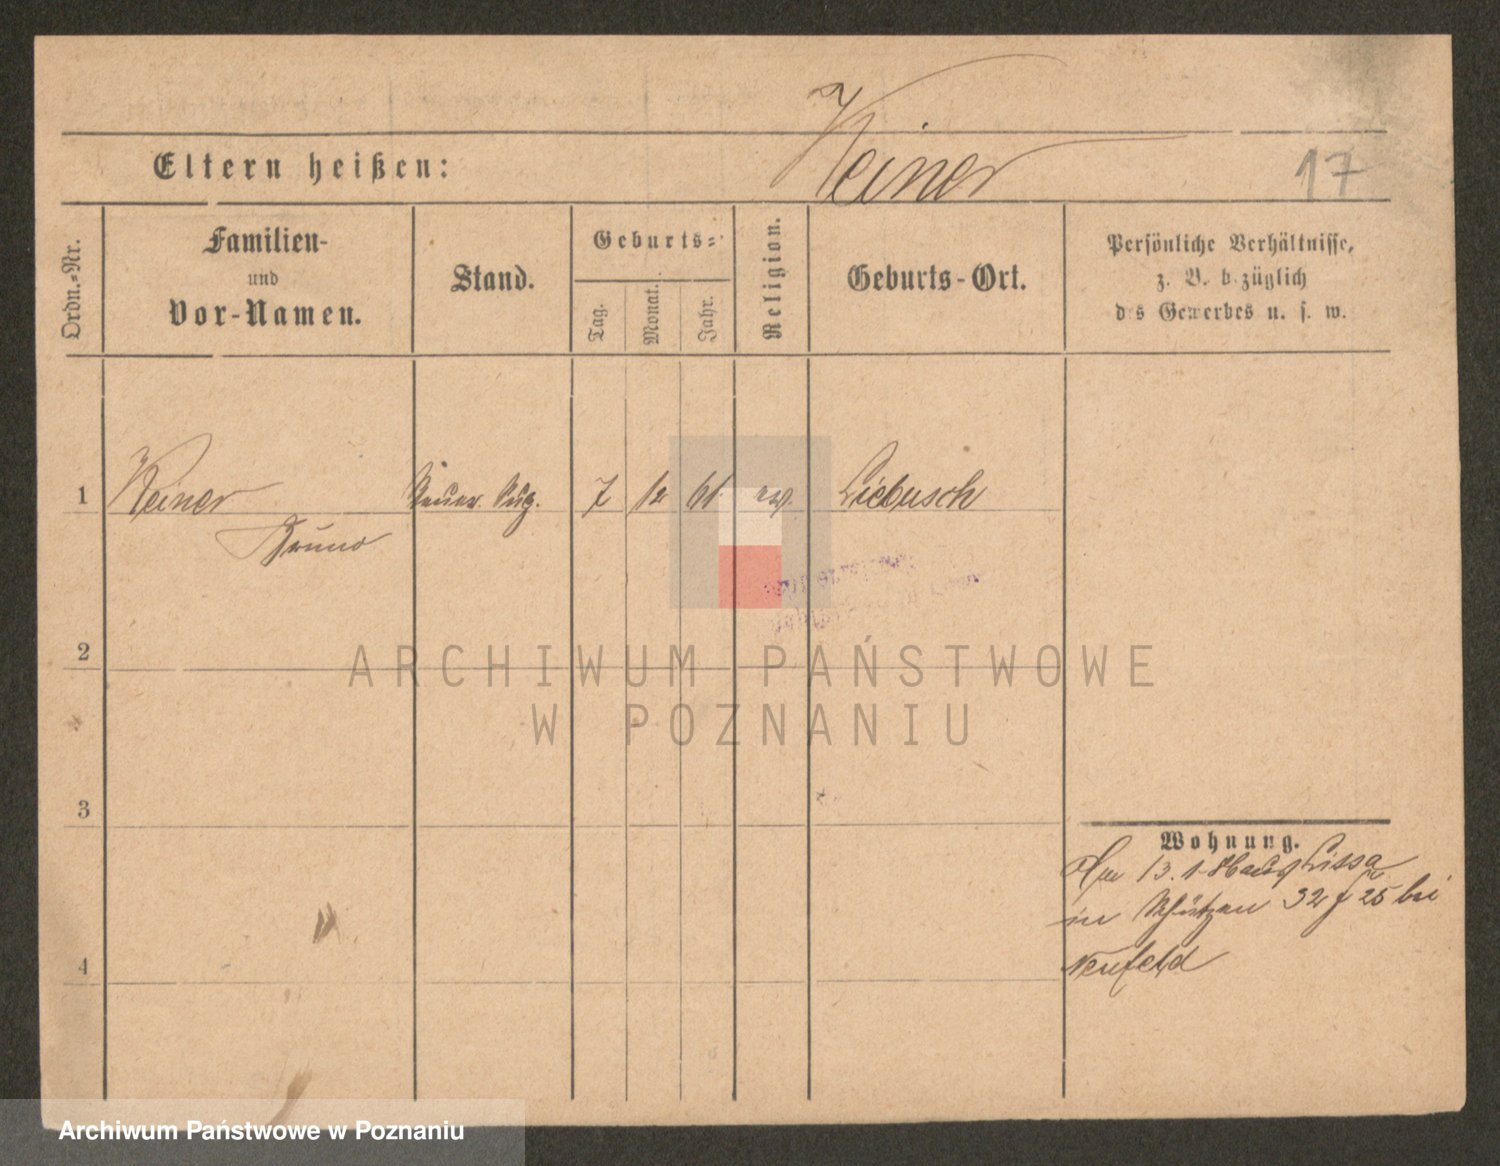 Keiner
17
Eltern heißen:
Ordn.-Nr.
Familien-
und
Vor-Namen.
Stand.
Geburts-
Tag.
Monat.
Jahr.
Religion.
Geburts-Ort.
Persönliche Verhältnisse,
z. B. bezüglich
des Gewerbes u. s. w.
1
Keiner
Bruno
7
12
61.
ev.
Liebusch
2
ARCHIWUM PAŃSTWOWE
W POZNANIU
3
Wohnung.
13. 1. Lissa
in Schützen 32 25 bei
Neufeld
4
Archiwum Państwowe w Poznaniu